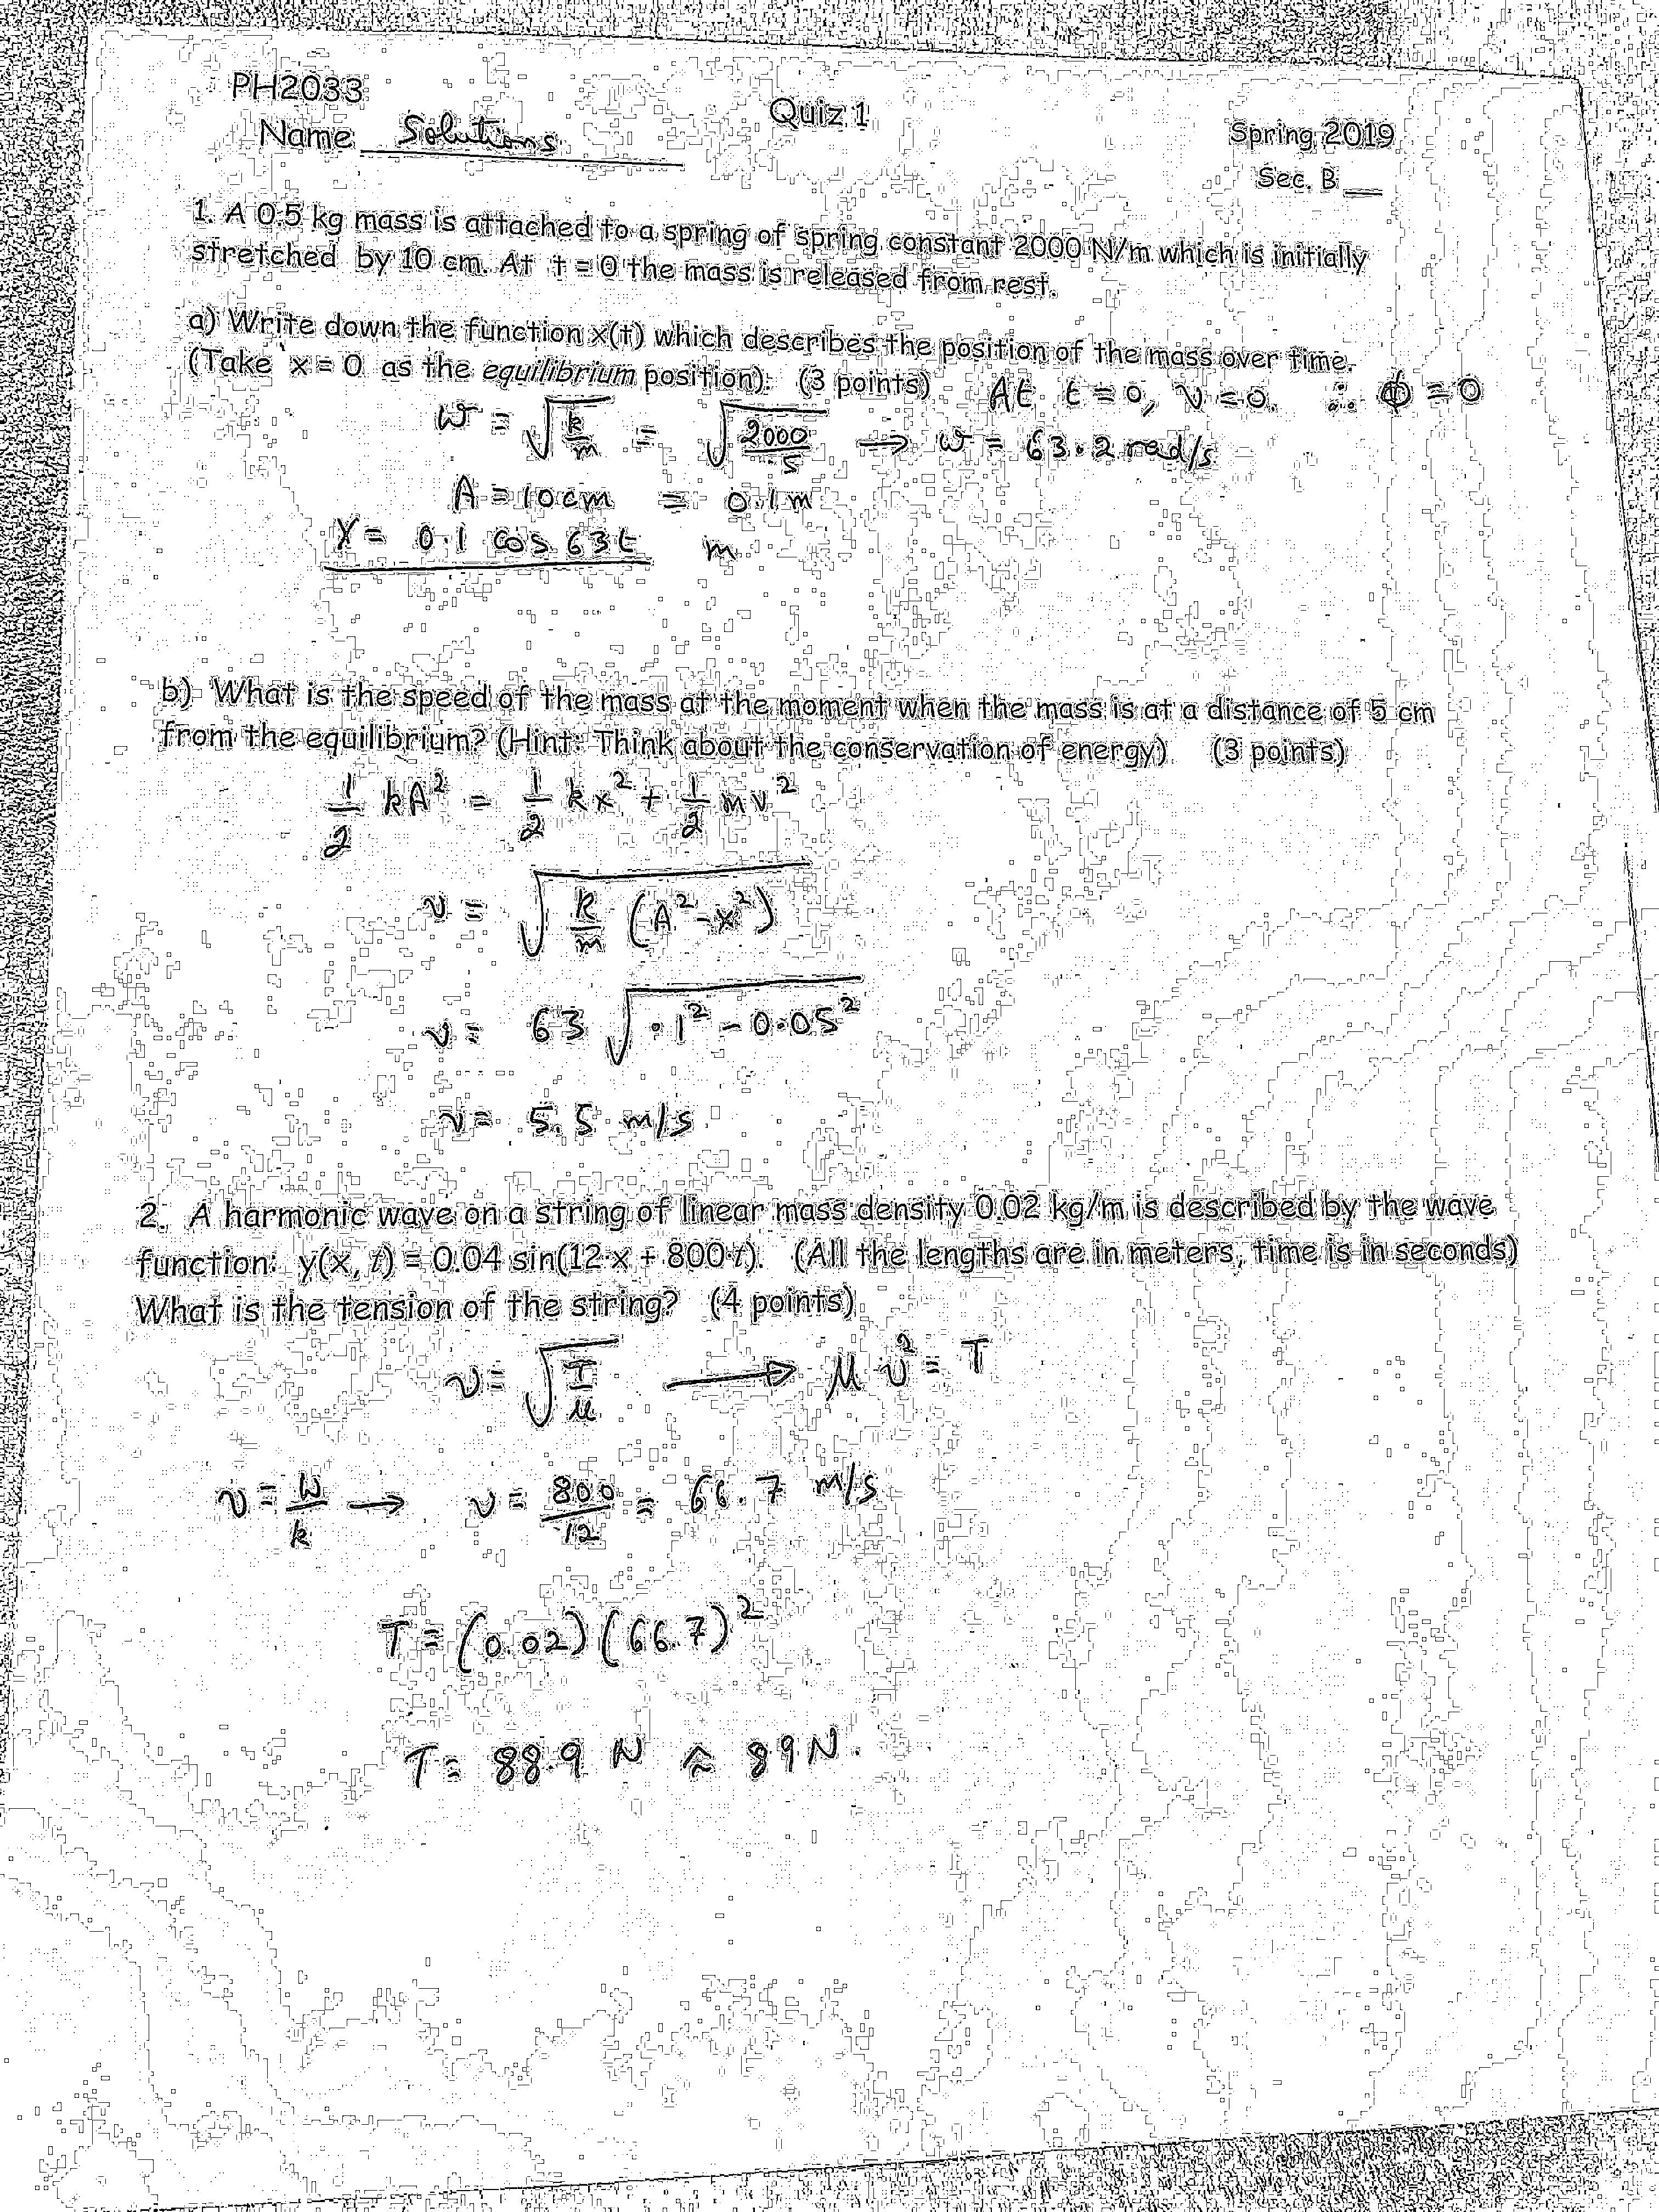 PH2033
Quiz 1
Name Solutions
Spring 2019
Sec. B __
1. A 0.5 kg mass is attached to a spring of spring constant 2000 N/m which is initially
stretched by 10 cm. At t = 0 the mass is released from rest.
a) Write down the function x(t) which describes the position of the mass over time.
(Take x = 0 as the equilibrium position). (3 points) At t = 0, v = 0. ∴ ϕ = 0
ω = √(k/m) = √(2000/.5) → ω = 63.2 rad/s
A = 10 cm = 0.1 m
X = 0.1 cos 63t m
b) What is the speed of the mass at the moment when the mass is at a distance of 5 cm
from the equilibrium? (Hint: Think about the conservation of energy) (3 points)
1/2 kA² = 1/2 kx² + 1/2 mv²
v = √(k/m (A² - x²))
v = 63 √(.1² - 0.05²)
v = 5.5 m/s
2. A harmonic wave on a string of linear mass density 0.02 kg/m is described by the wave
function: y(x, t) = 0.04 sin(12·x + 800·t). (All the lengths are in meters, time is in seconds)
What is the tension of the string? (4 points)
v = √(T/μ) → μ v² = T
v = ω/k → v = 800/12 = 66.7 m/s
T = (0.02)(66.7)²
T = 88.9 N ≈ 89 N.